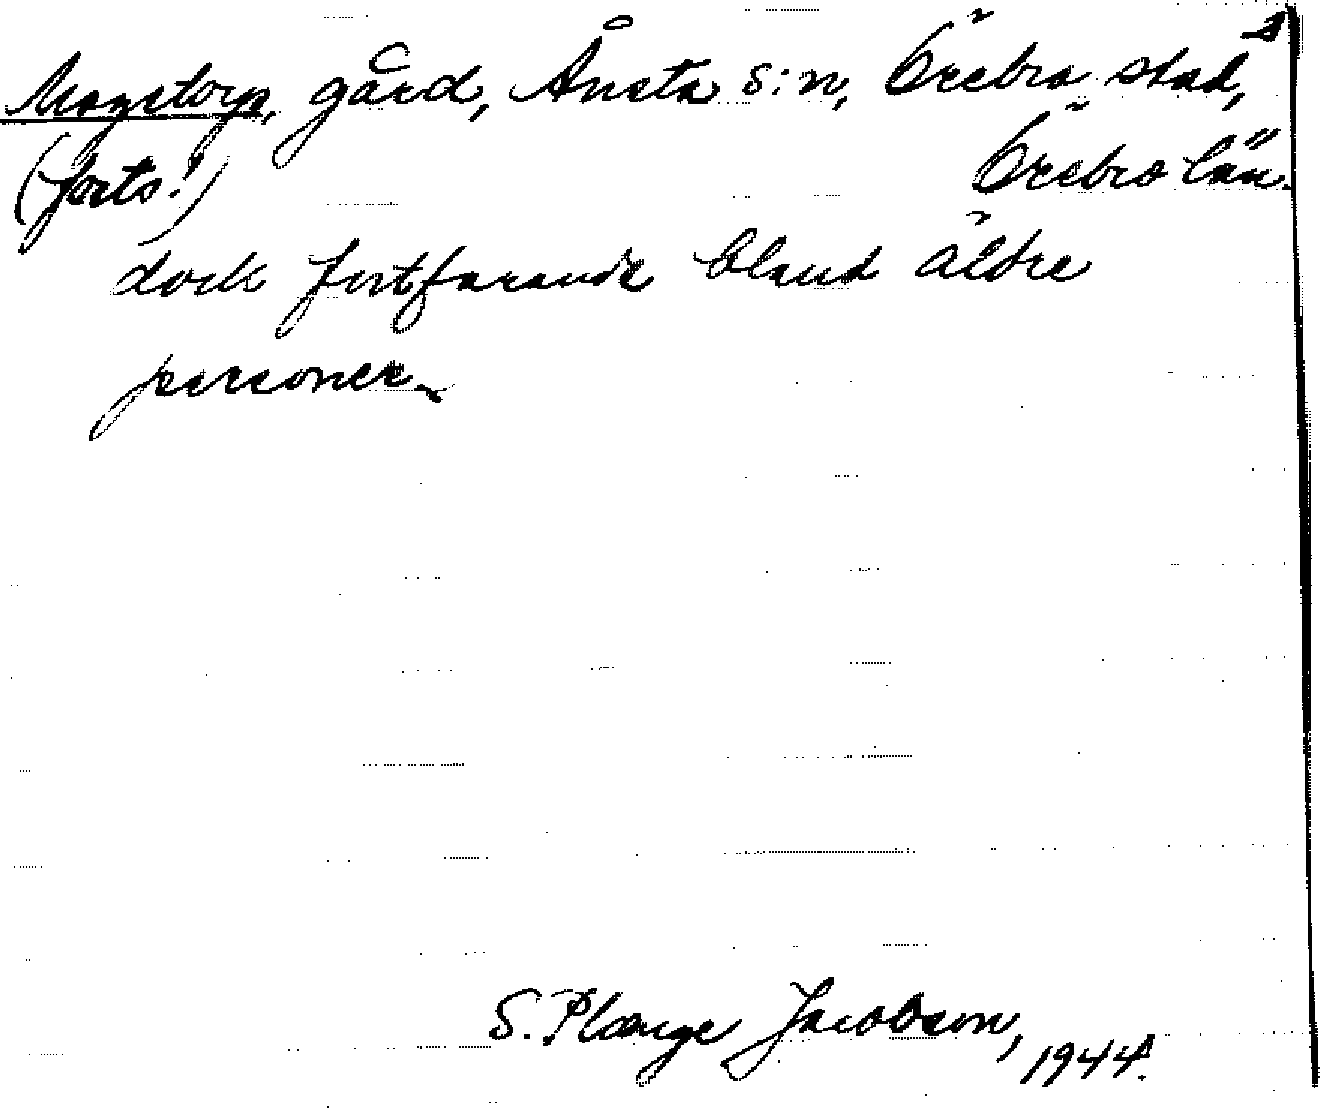 Mogetorp, gård, Ånsta s:n, Örebro stad,
(forts.) Örebro län.
dock fortfarande bland äldre
personer.
S. Plænge Jacobson,
1944.